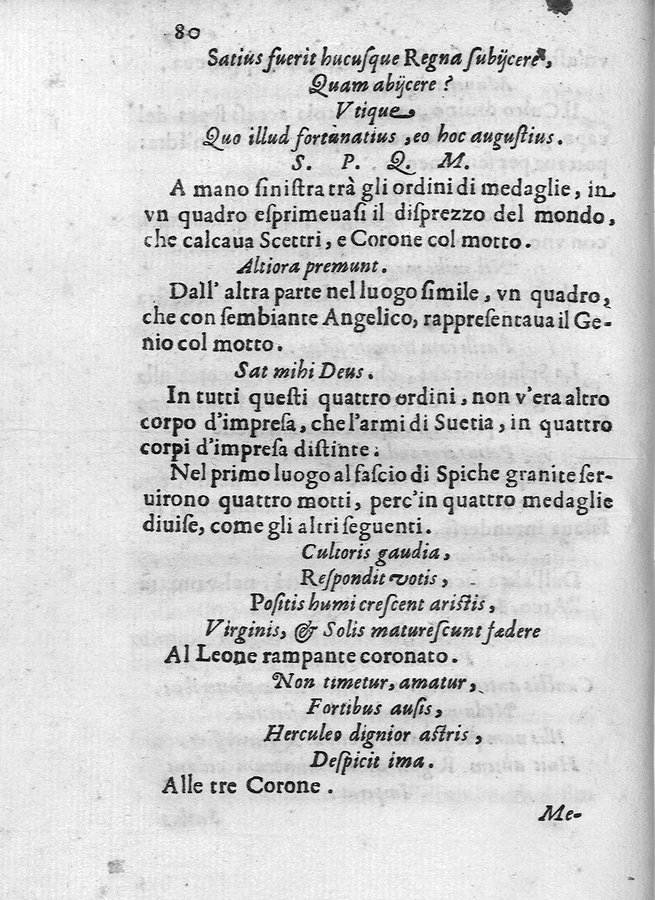 80
Satiùs fuerit hucuſque Regna ſubijcere,
Quam abijcere ?
Vtique
Quo illud fortunatius , eo hoc auguſtius.
S. P. Q. M.
A mano ſiniſtra trà gli ordini di medaglie, in
vn quadro eſprimeuaſi il diſprezzo del mondo,
che calcaua Scettri, e Corone col motto.
Altiora premunt.
Dall' altra parte nel luogo ſimile, vn quadro,
che con ſembiante Angelico, rappreſentaua il Ge-
nio col motto.
Sat mihi Deus.
In tutti queſti quattro ordini, non v'era altro
corpo d'impreſa, che l'armi di Suetia, in quattro
corpi d'impreſa diſtinte.
Nel primo luogo al faſcio di Spiche granite ſer-
uirono quattro motti, perc'in quattro medaglie
diuiſe, come gli altri ſeguenti.
Cultoris gaudia,
Reſpondit votis,
Poſitis humi creſcent ariſtis,
Virginis, & Solis matureſcunt fædere
Al Leone rampante coronato.
Non timetur, amatur,
Fortibus auſis,
Herculeo dignior aſtris,
Deſpicit ima.
Alle tre Corone.
Me-